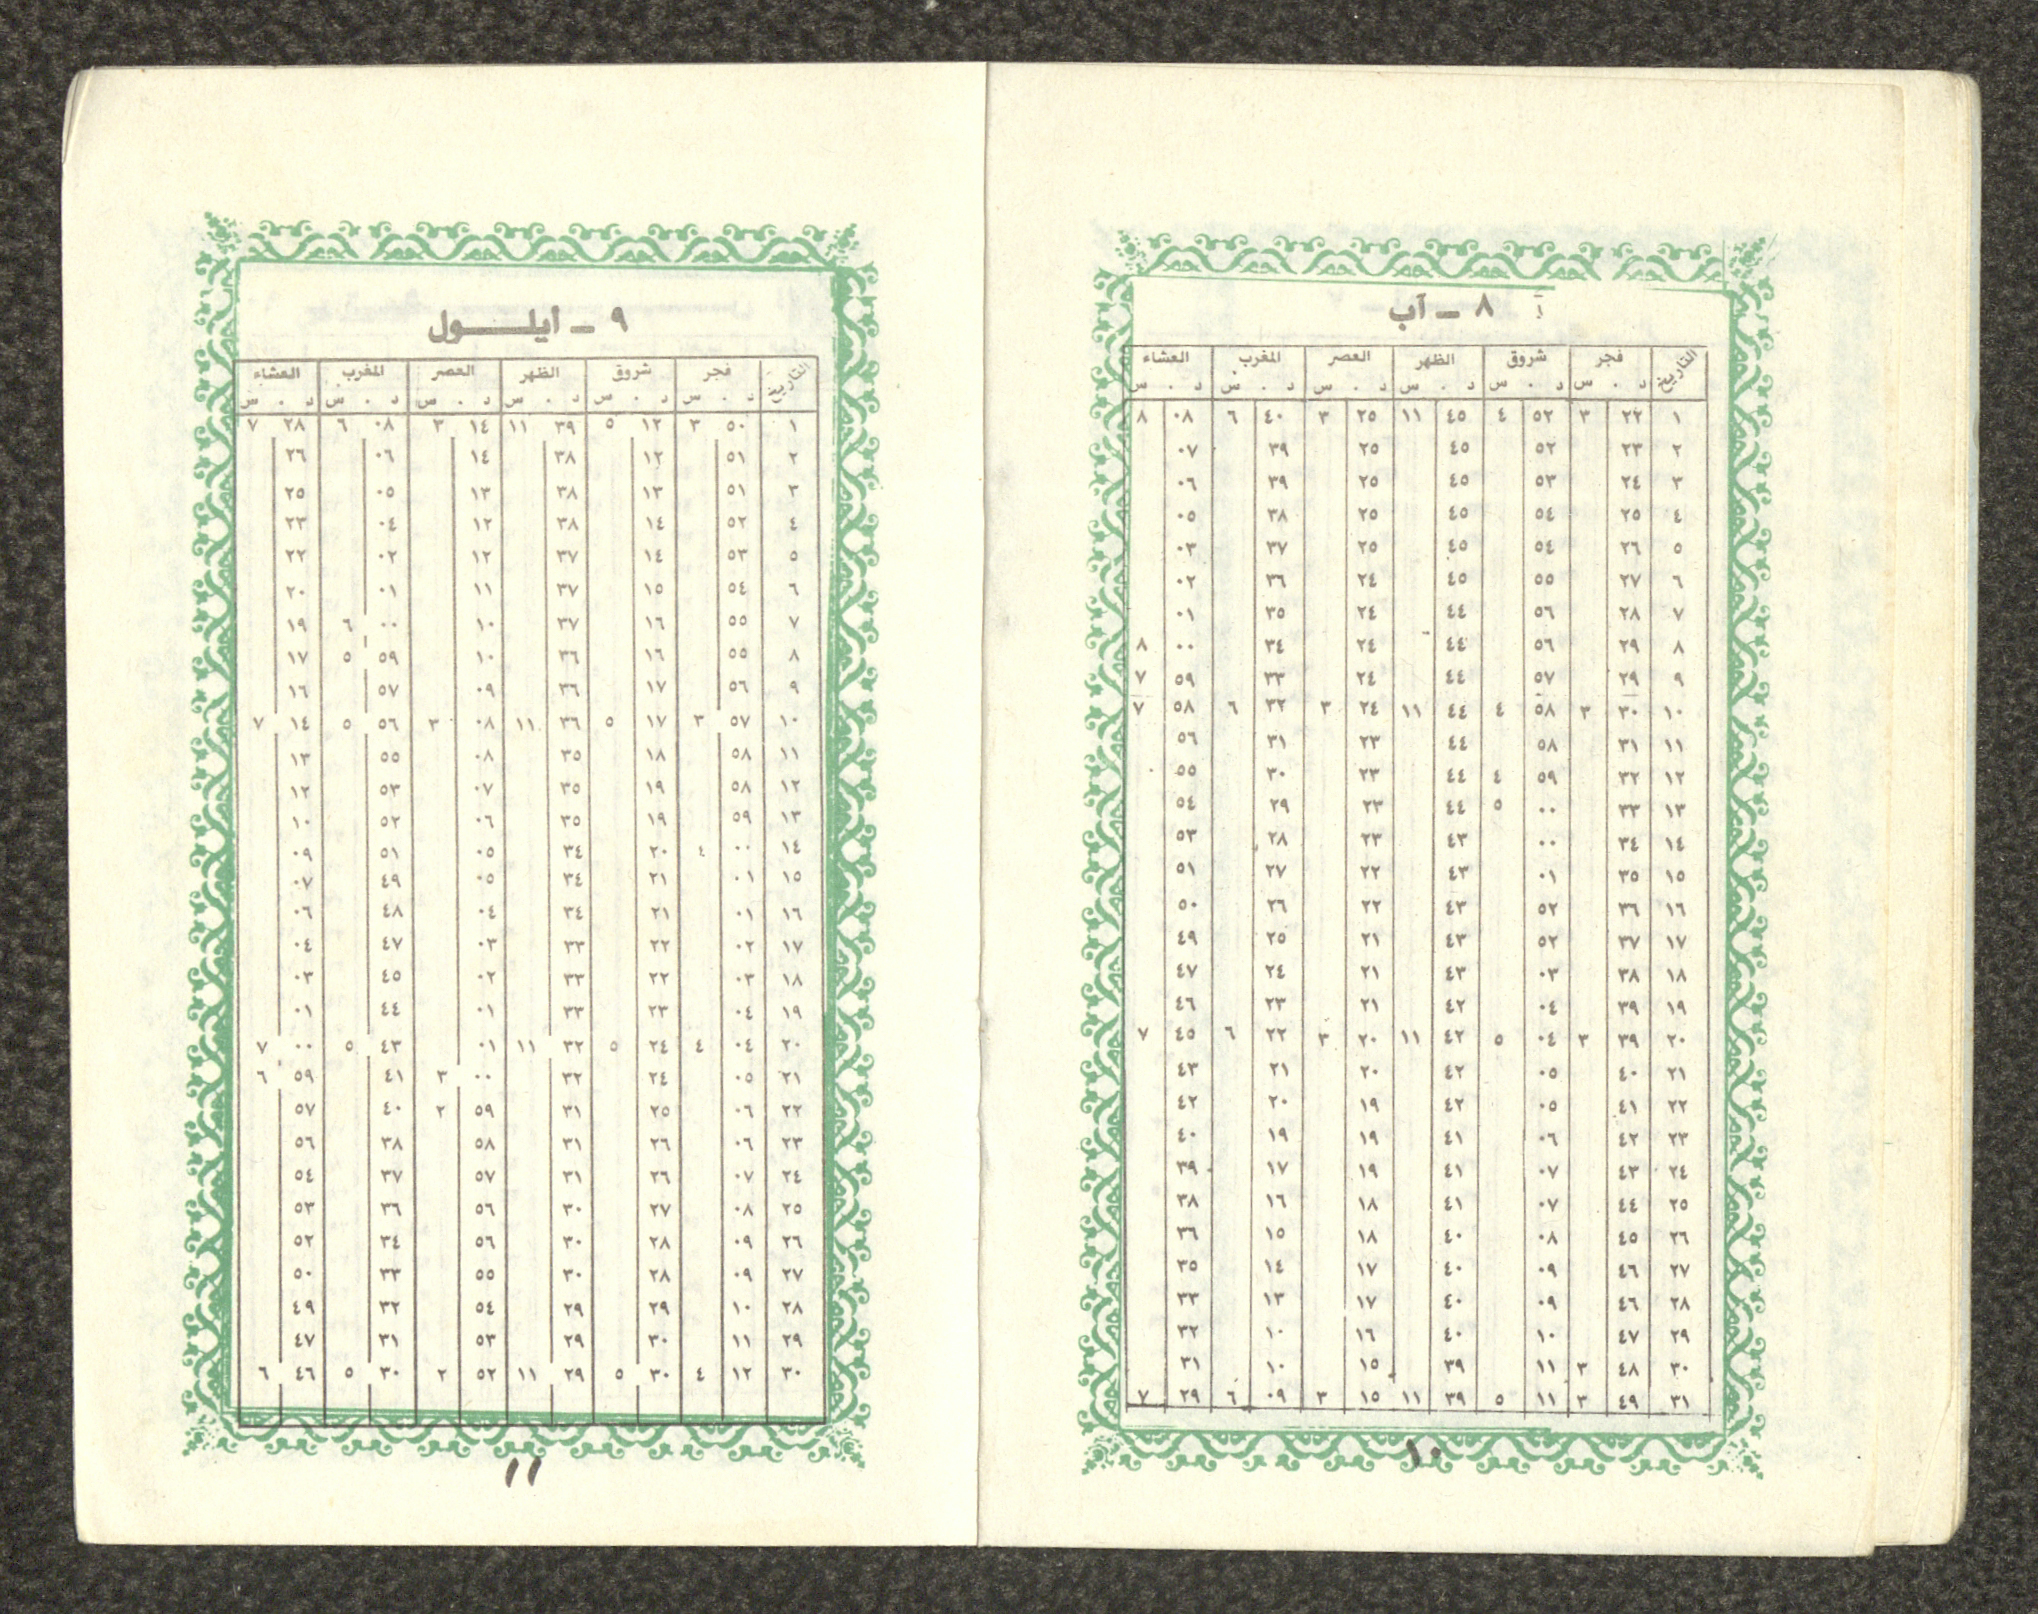 ٨ - آب
التاريخ فجر شروق الظهر العصر المغرب العشاء
د . س د . س د . س د . س د . س د . س
١ ٢٢ ٣ ٥٢ ٤ ٤٥ ١١ ٢٥ ٣ ٤٠ ٦ ٠٨ ٨
٢ ٢٣ ٥٢ ٤٥ ٢٥ ٣٩ ٠٧
٣ ٢٤ ٥٣ ٤٥ ٢٥ ٣٩ ٠٦
٤ ٢٥ ٥٤ ٤٥ ٢٥ ٣٨ ٠٥
٥ ٢٦ ٥٤ ٤٥ ٢٥ ٣٧ ٠٣
٦ ٢٧ ٥٥ ٤٥ ٢٤ ٣٦ ٠٢
٧ ٢٨ ٥٦ ٤٤ ٢٤ ٣٥ ٠١
٨ ٢٩ ٥٦ ٤٤ ٢٤ ٣٤ ٠٠ ٨
٩ ٢٩ ٥٧ ٤٤ ٢٤ ٣٣ ٥٩ ٧
١٠ ٣٠ ٣ ٥٨ ٤ ٤٤ ١١ ٢٤ ٣ ٣٢ ٦ ٥٨ ٧
١١ ٣١ ٥٨ ٤٤ ٢٣ ٣١ ٥٦
١٢ ٣٢ ٥٩ ٤ ٤٤ ٢٣ ٣٠ ٥٥
١٣ ٣٣ ٠٠ ٥ ٤٤ ٢٣ ٢٩ ٥٤
١٤ ٣٤ ٠٠ ٤٣ ٢٣ ٢٨ ٥٣
١٥ ٣٥ ٠١ ٤٣ ٢٢ ٢٧ ٥١
١٦ ٣٦ ٥٢ ٤٣ ٢٢ ٢٦ ٥٠
١٧ ٣٧ ٥٢ ٤٣ ٢١ ٢٥ ٤٩
١٨ ٣٨ ٠٣ ٤٣ ٢١ ٢٤ ٤٧
١٩ ٣٩ ٠٤ ٤٢ ٢١ ٢٣ ٤٦
٢٠ ٣٩ ٣ ٠٤ ٥ ٤٢ ١١ ٢٠ ٣ ٢٢ ٦ ٤٥ ٧
٢١ ٤٠ ٠٥ ٤٢ ٢٠ ٢١ ٤٣
٢٢ ٤١ ٠٥ ٤٢ ١٩ ٢٠ ٤٢
٢٣ ٤٢ ٠٦ ٤١ ١٩ ١٩ ٤٠
٢٤ ٤٣ ٠٧ ٤١ ١٩ ١٧ ٣٩
٢٥ ٤٤ ٠٧ ٤١ ١٨ ١٦ ٣٨
٢٦ ٤٥ ٠٨ ٤٠ ١٨ ١٥ ٣٦
٢٧ ٤٦ ٠٩ ٤٠ ١٧ ١٤ ٣٥
٢٨ ٤٦ ٠٩ ٤٠ ١٧ ١٣ ٣٣
٢٩ ٤٧ ١٠ ٤٠ ١٦ ١٠ ٣٢
٣٠ ٤٨ ٣ ١١ ٣٩ ١٥ ١٠ ٣١
٣١ ٤٩ ٣ ١١ ٥ ٣٩ ١١ ١٥ ٣ ٠٩ ٦ ٢٩ ٧
١٠
٩ - أيلـــول
التاريخ فجر شروق الظهر العصر المغرب العشاء
د . س د . س د . س د . س د . س د . س
١ ٥٠ ٣ ١٢ ٥ ٣٩ ١١ ١٤ ٣ ٠٨ ٦ ٢٨ ٧
٢ ٥١ ١٢ ٣٨ ١٤ ٠٦ ٢٦
٣ ٥١ ١٣ ٣٨ ١٣ ٠٥ ٢٥
٤ ٥٢ ١٤ ٣٨ ١٢ ٠٤ ٢٣
٥ ٥٣ ١٤ ٣٧ ١٢ ٠٢ ٢٢
٦ ٥٤ ١٥ ٣٧ ١١ ٠١ ٢٠
٧ ٥٥ ١٦ ٣٧ ١٠ ٠٠ ٦ ١٩
٨ ٥٥ ١٦ ٣٦ ١٠ ٥٩ ٥ ١٧
٩ ٥٦ ١٧ ٣٦ ٠٩ ٥٧ ١٦
١٠ ٥٧ ٣ ١٧ ٥ ٣٦ ١١ ٠٨ ٣ ٥٦ ٥ ١٤ ٧
١١ ٥٨ ١٨ ٣٥ ٠٨ ٥٥ ١٣
١٢ ٥٨ ١٩ ٣٥ ٠٧ ٥٣ ١٢
١٣ ٥٩ ١٩ ٣٥ ٠٦ ٥٢ ١٠
١٤ ٠٠ ٤ ٢٠ ٣٤ ٠٥ ٥١ ٠٩
١٥ ٠١ ٢١ ٣٤ ٠٥ ٤٩ ٠٧
١٦ ٠١ ٢١ ٣٤ ٠٤ ٤٨ ٠٦
١٧ ٠٢ ٢٢ ٣٣ ٠٣ ٤٧ ٠٤
١٨ ٠٣ ٢٢ ٣٣ ٠٢ ٤٥ ٠٣
١٩ ٠٤ ٢٣ ٣٣ ٠١ ٤٤ ٠١
٢٠ ٠٤ ٤ ٢٤ ٥ ٣٢ ١١ ٠١ ٤٣ ٥ ٠٠ ٧
٢١ ٠٥ ٢٤ ٣٢ ٠٠ ٣ ٤١ ٥٩ ٦
٢٢ ٠٦ ٢٥ ٣١ ٥٩ ٢ ٤٠ ٥٧
٢٣ ٠٦ ٢٦ ٣١ ٥٨ ٣٨ ٥٦
٢٤ ٠٧ ٢٦ ٣١ ٥٧ ٣٧ ٥٤
٢٥ ٠٨ ٢٧ ٣٠ ٥٦ ٣٦ ٥٣
٢٦ ٠٩ ٢٨ ٣٠ ٥٦ ٣٤ ٥٢
٢٧ ٠٩ ٢٨ ٣٠ ٥٥ ٣٣ ٥٠
٢٨ ١٠ ٢٩ ٢٩ ٥٤ ٣٢ ٤٩
٢٩ ١١ ٣٠ ٢٩ ٥٣ ٣١ ٤٧
٣٠ ١٢ ٤ ٣٠ ٥ ٢٩ ١١ ٥٢ ٢ ٣٠ ٥ ٤٦ ٦
١١